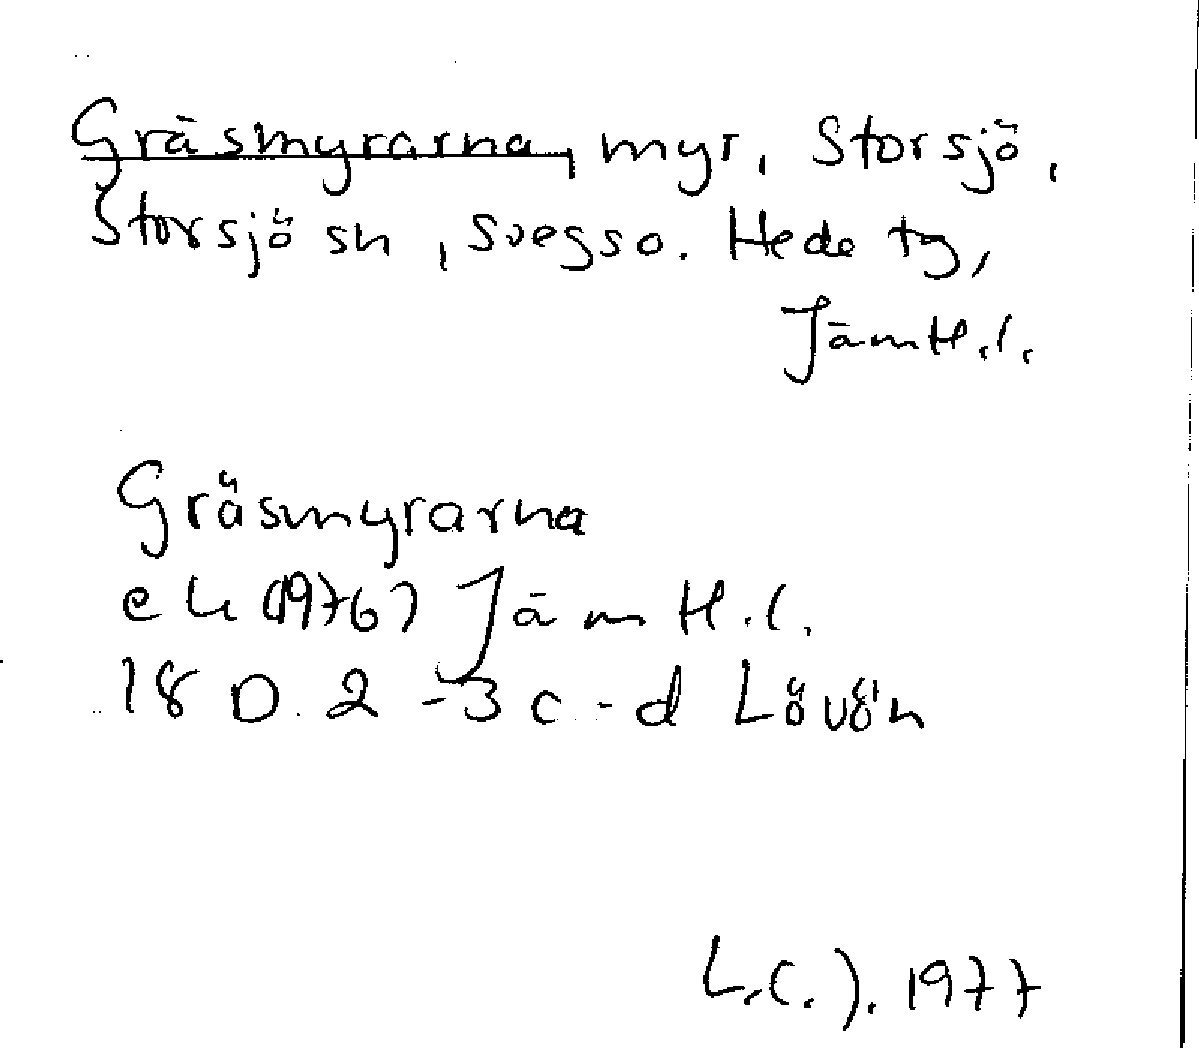 Gräsmyrarna, myr, Storsjö,
Storsjö sn, Svegs so. Hede tg,
Jämtl.l.
Gräsmyrarna
ek (1976) Jämtl.l.
18 D. 2-3 c-d Lövön
L.C.J. 1977